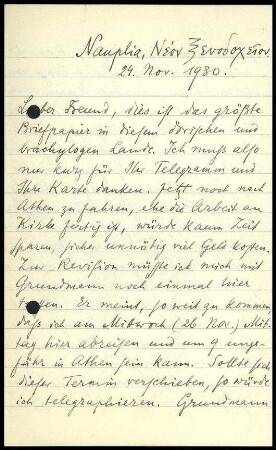 Nauplia, Νέον Ξενοδοχεῖον.
24. Nov. 1930.
Lieber Freund, dies ist das größte
Briefpapier in diesem dorischen und
brachylogen Lande. Ich muß also
nur kurz für Ihr Telegramm und
Ihre Karte danken. Jetzt noch nach
Athen zu fahren, ehe die Arbeit an
Kirke fertig ist, würde kaum Zeit
sparen, sicher unnötig viel Geld kosten.
Zur Revision müßte ich mich mit
Grundmann noch einmal hier
treffen. Er meint, so weit zu kommen,
daß ich am Mittwoch (26 Nov.) Mit-
tag hier abreisen und um 9 unge-
führ in Athen sein kann. Sollte sich
dieser Termin verschieben, so würde
ich telegraphieren. Grundmann